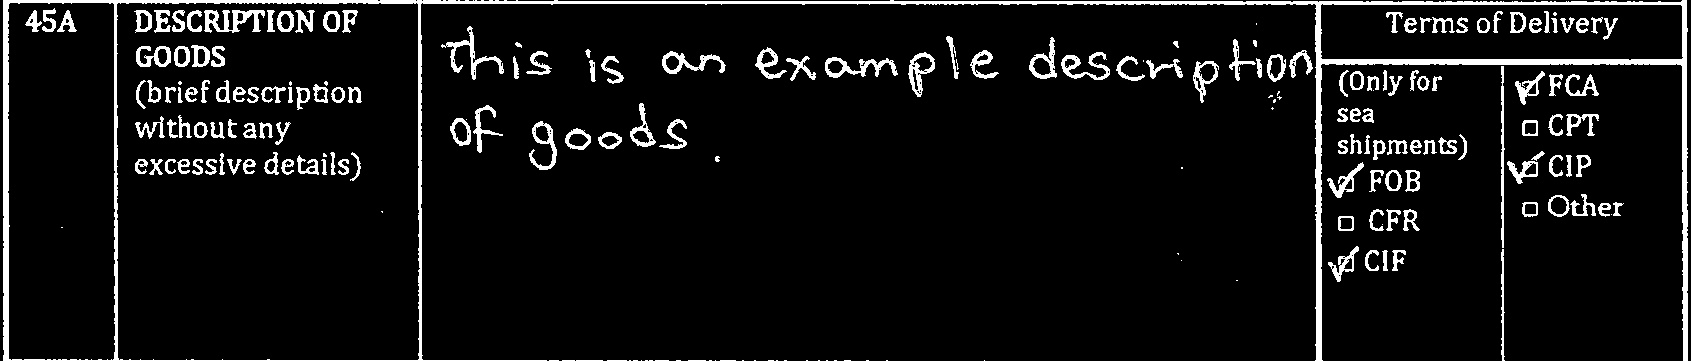 45A
DESCRIPTION OF
GOODS
(brief description
without any
excessive details)
This is an example description
of goods.
Terms of Delivery
(Only for
sea
shipments)
☑ FOB
☐ CFR
☑ CIF
☑ FCA
☐ CPT
☑ CIP
☐ Other